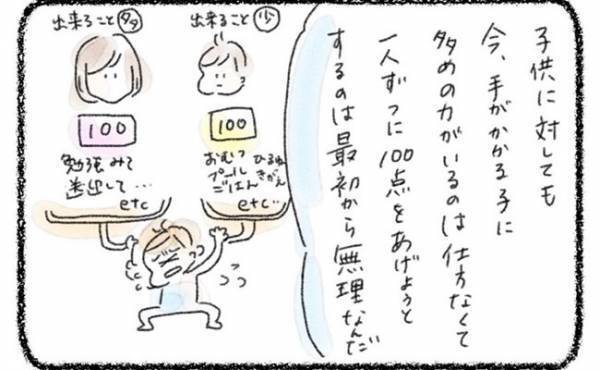 子供に対しても
今、手がかかる子に
多めの力がいるのは仕方なくて
一人ずつに100点をあげようと
するのは最初から無理なんだ
出来ること 少
100
おむつ ひるね
プール きがえ
ごはん
etc…
出来ること 多
100
勉強みて
送出して…
etc